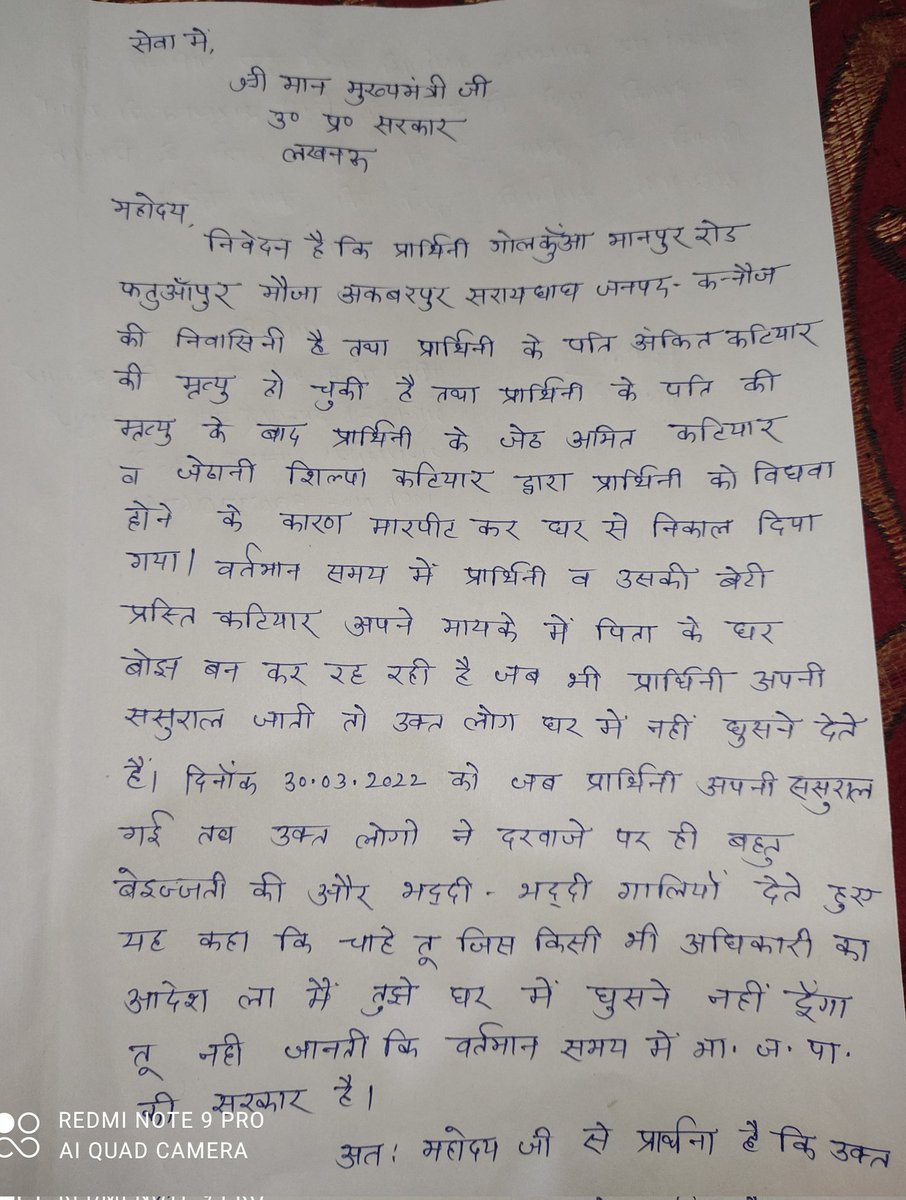 सेवा में,
श्री मान मुख्यमंत्री जी
उ० प्र० सरकार
लखनऊ
महोदय,
निवेदन है कि प्रार्थिनी गोलकुँआ मानपुर रोड
फतुआँपुर मौजा अकबरपुर सरायघाघ जनपद- कन्नौज
की निवासिनी है तथा प्रार्थिनी के पति अंकित कटियार
की मृत्यु हो चुकी है तथा प्रार्थिनी के पति की
मृत्यु के बाद प्रार्थिनी के जेठ अमित कटियार
व जेठानी शिल्पा कटियार द्वारा प्रार्थिनी को विधवा
होने के कारण मारपीट कर घर से निकाल दिया
गया। वर्तमान समय में प्रार्थिनी व उसकी बेटी
प्रस्ति कटियार अपने मायके में पिता के घर
बोझ बन कर रह रही है जब भी प्रार्थिनी अपनी
ससुराल जाती तो उक्त लोग घर में नहीं घुसने देते
हैं। दिनाँक 30.03.2022 को जब प्रार्थिनी अपनी ससुराल
गई तब उक्त लोगो ने दरवाजे पर ही बहुत
बेइज्जती की और भद्दी - भद्दी गालियाँ देते हुए
यह कहा कि चाहे तू जिस किसी भी अधिकारी का
आदेश ला मैं तुझे घर में घुसने नहीं दूँगा
तू नही जानती कि वर्तमान समय में भा. ज. पा.
की सरकार है।
अत: महोदय जी से प्रार्थना है कि उक्त
REDMI NOTE 9 PRO
AI QUAD CAMERA